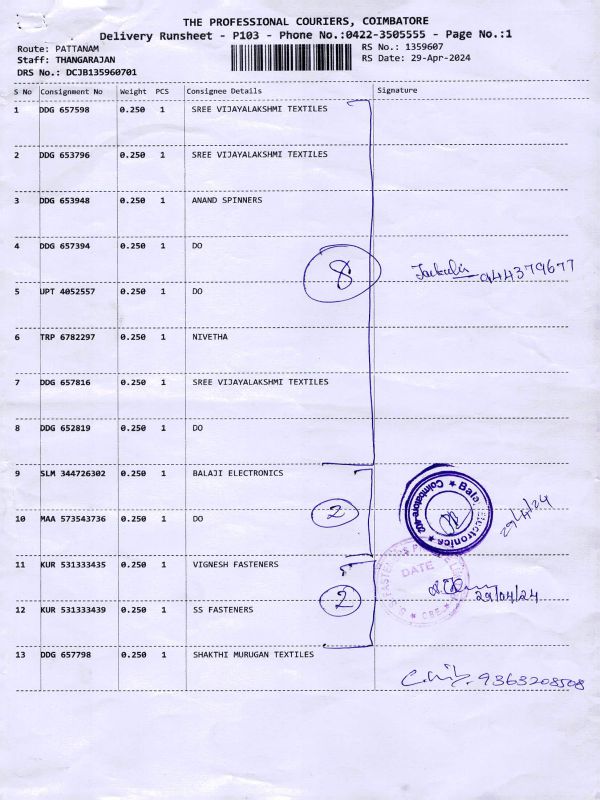 THE PROFESSIONAL COURIERS, COIMBATORE
Delivery Runsheet - P103 - Phone No.:0422-3505555 - Page No.:1
Route: PATTANAM
RS No.: 1359607
Staff: THANGARAJAN
RS Date: 29-Apr-2024
DRS No.: DCJB135960701
S No Consignment No Weight PCS Consignee Details Signature
1 DDG 657598 0.250 1 SREE VIJAYALAKSHMI TEXTILES
2 DDG 653796 0.250 1 SREE VIJAYALAKSHMI TEXTILES
3 DDG 653948 0.250 1 ANAND SPINNERS
4 DDG 657394 0.250 1 DO
8 944379677
5 UPT 4052557 0.250 1 DO
6 TRP 6782297 0.250 1 NIVETHA
7 DDG 657816 0.250 1 SREE VIJAYALAKSHMI TEXTILES
8 DDG 652819 0.250 1 DO
9 SLM 344726302 0.250 1 BALAJI ELECTRONICS
2 29/4/24
10 MAA 573543736 0.250 1 DO
11 KUR 531333435 0.250 1 VIGNESH FASTENERS
DATE
2 29/04/24
12 KUR 531333439 0.250 1 SS FASTENERS
CBE
13 DDG 657798 0.250 1 SHAKTHI MURUGAN TEXTILES
9363208508